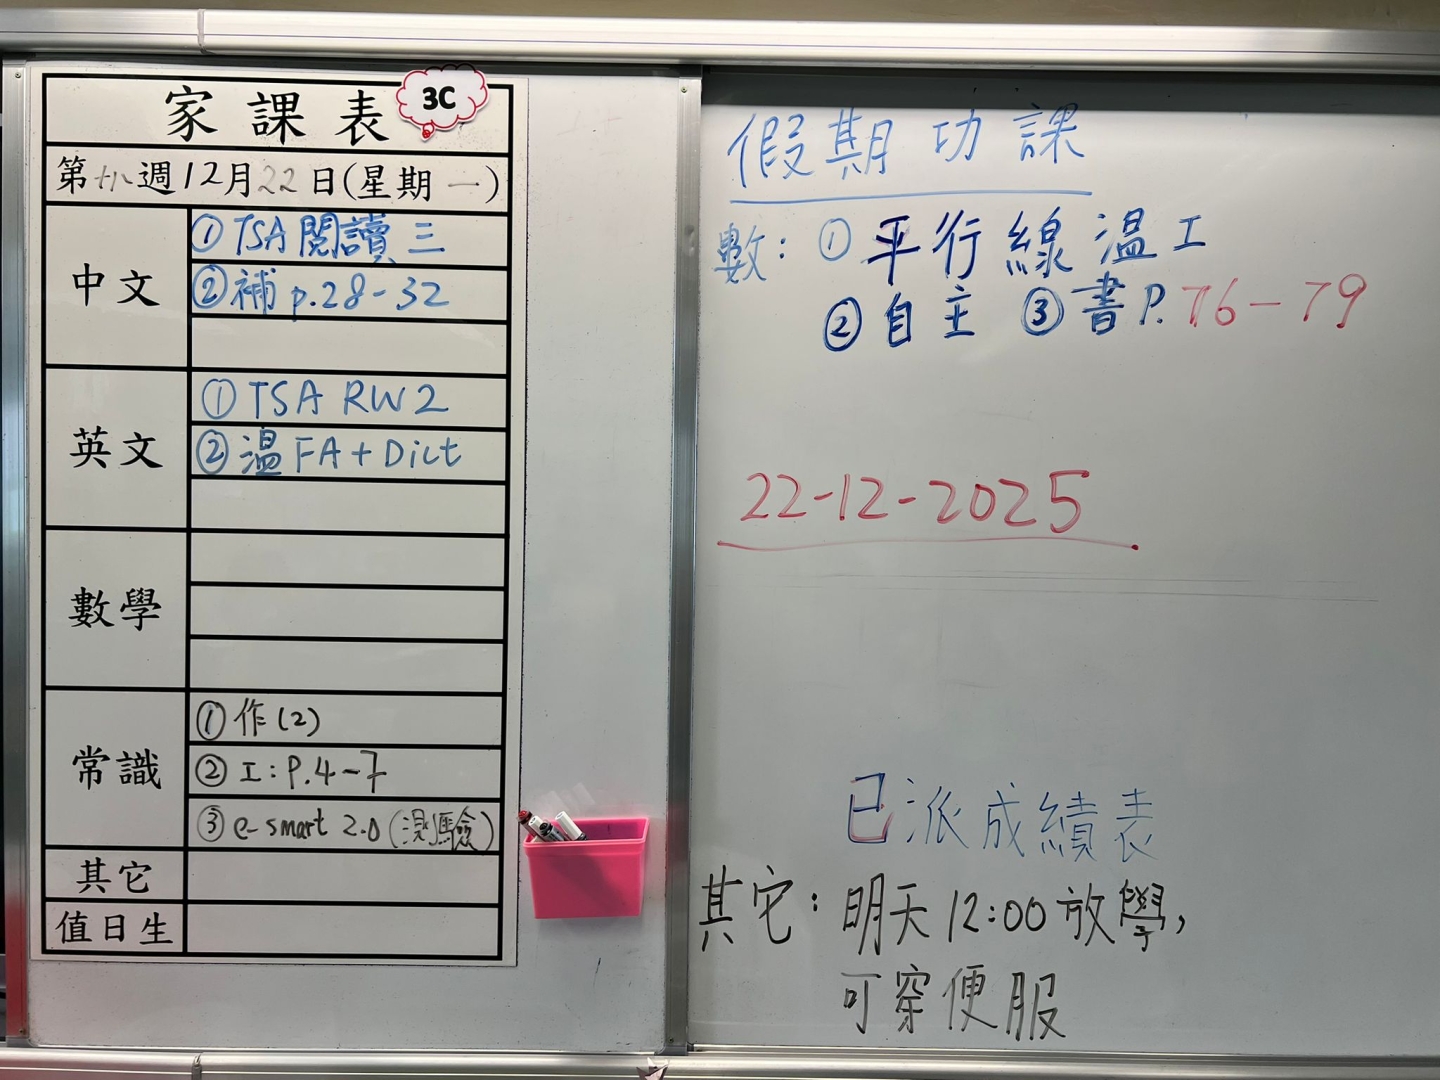 家課表 3C
第十八週12月22日(星期一)
中文
①TSA閱讀三
②補p.28-32
英文
①TSA RW2
②温FA+Dict
數學
常識
①作(2)
②工:P.4-7
③e-smart 2.0(測驗)
其它
值日生
假期功課
數:①平行線温工
②自主 ③書P.76-79
22-12-2025
已派成績表
其它:明天12:00放學,
可穿便服